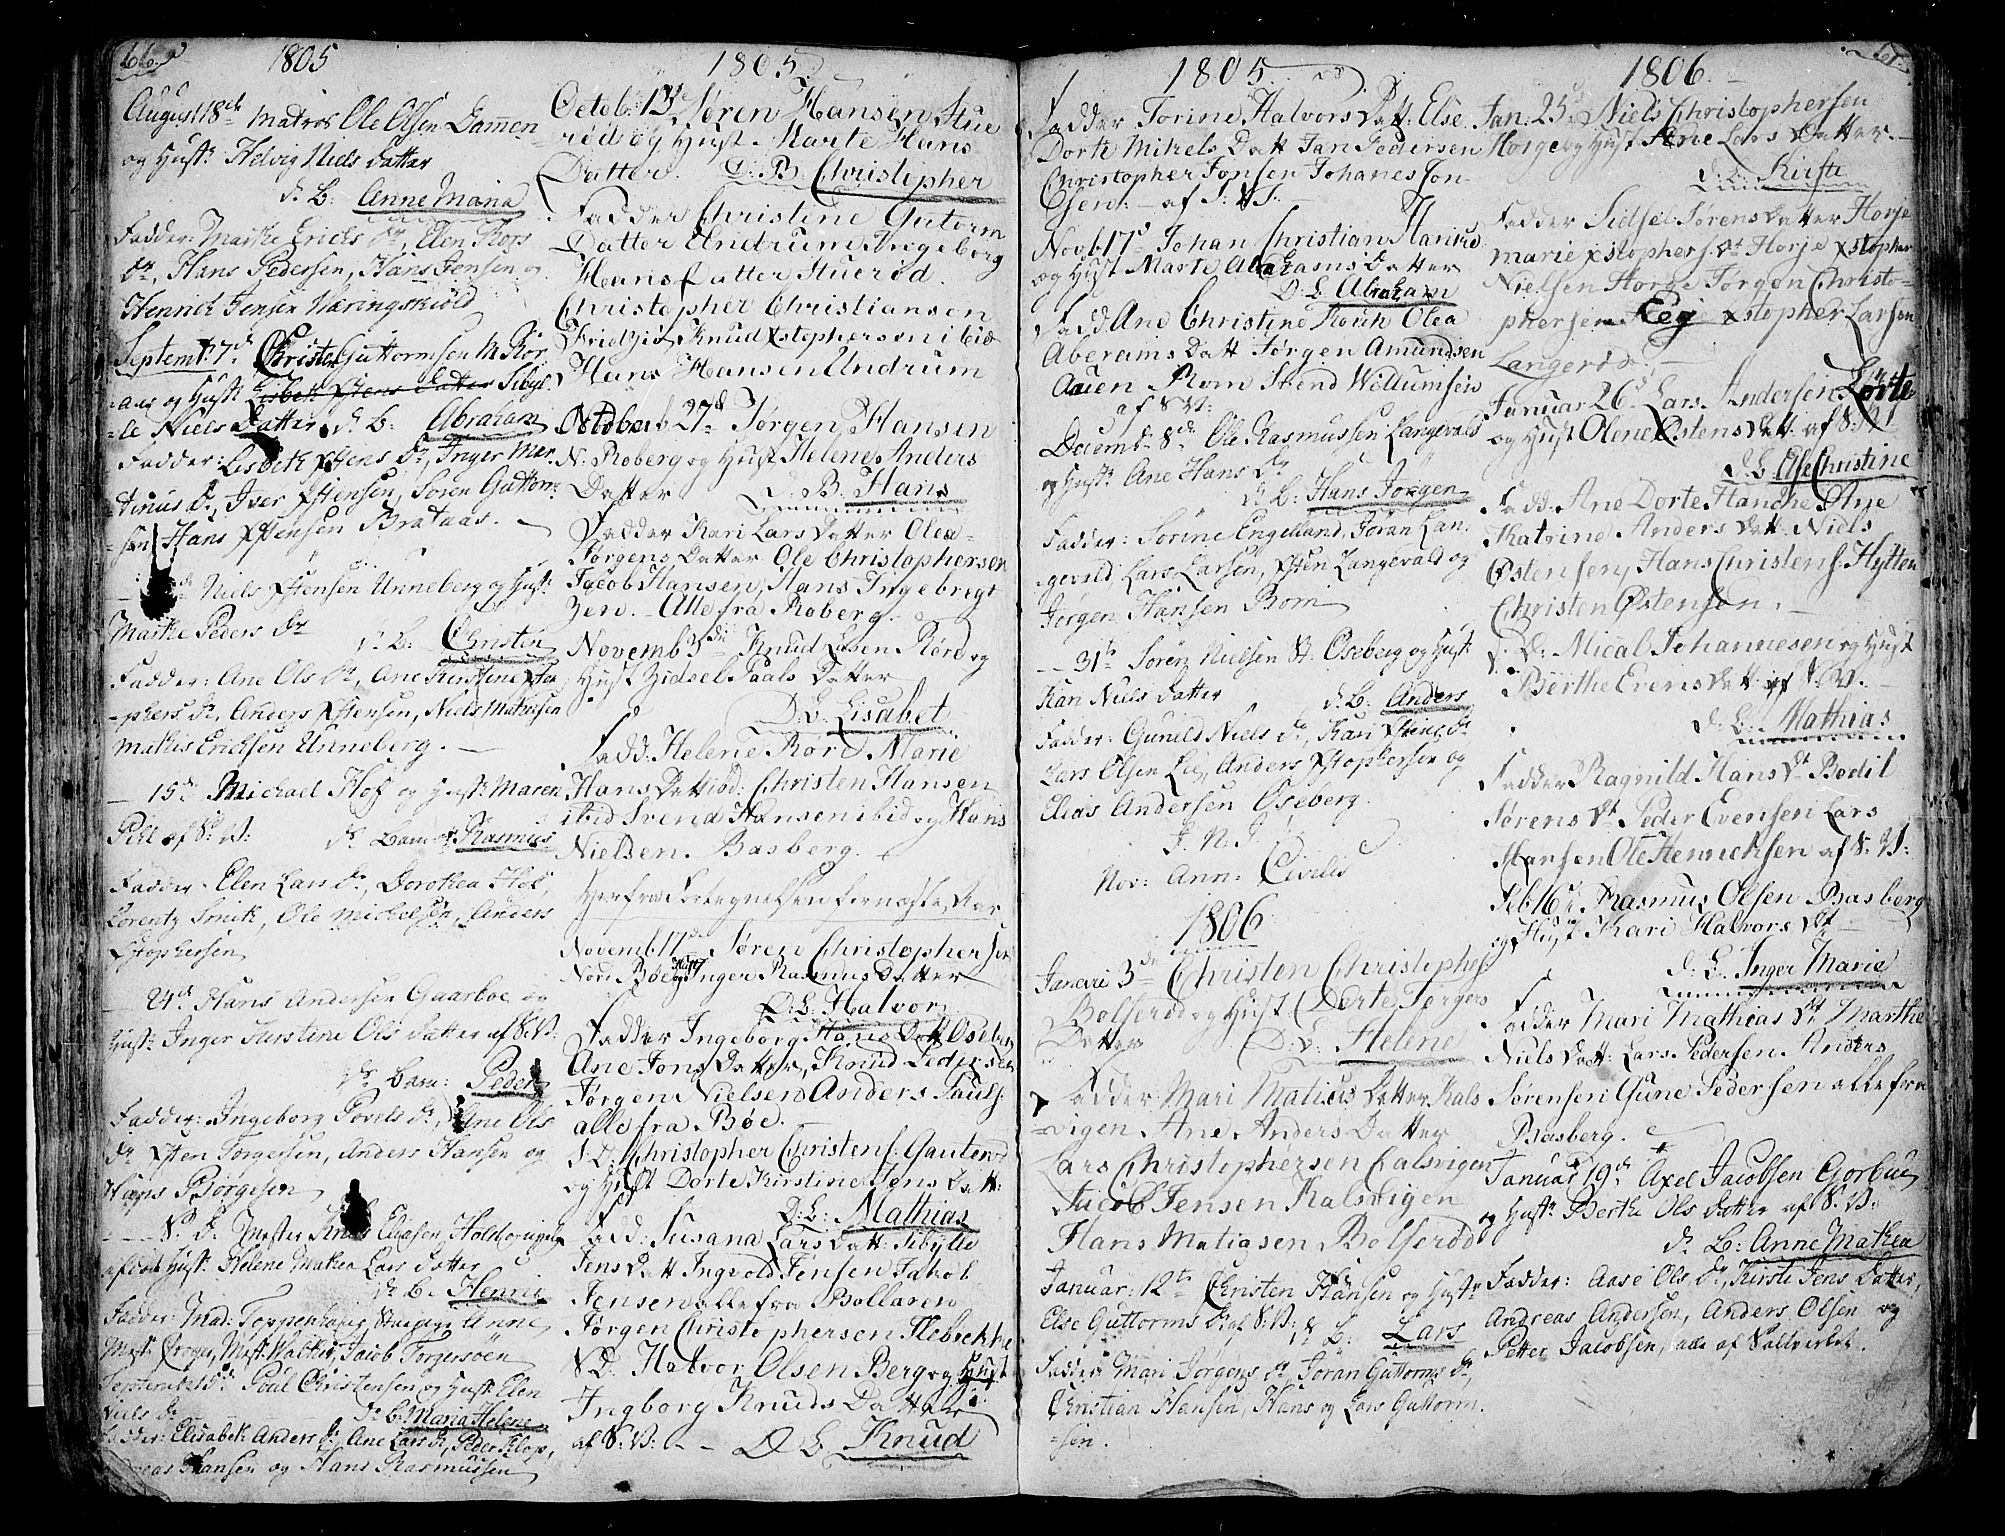 66.
1805
August 18de Matros Ole Olsen Lammen
og Hustr: Helvig Niels datter
d. B: Anne Maria
Fadder: Marthe Erichs Dr, Elen Klops
Dr, Hans Pedersen, Hans Jensen og
Henrich Jensen Væringskiold
Septemb: 7de Christen Guttormsen
og Hustr: Lisbeth Xstens datter Sibyl
-le Niels Datter d. B: Abraham
Fadder: Lisbeth Xstens Dr, Inger Mar
tinus Dr, Iver Xstensen, Søren Guttorm
sen Hans Xstensen Brataas.
Niels Xstensen Unneberg og Hustr:
Marthe Peders Dr
d. B: Christen
Fadder: Ane Ols Dr, Ane Kirstine Xsto
-phers Dr, Anders Xstensen, Niels Mathisen
Mathis Erichsen Unneberg.
15de Michael Hof og Hustr: Maren
Pihl af S: V:
dr Barn: Rasmus
Fadder: Elen Lars Dr, Dorothea Hof,
Lorentz Smith, Ole Michelsen, Anders
Xstophersen
24de Hans Andersen Gaarboe og
Hustr: Inger Kirstine Ols datter af S: V:
dr Barn: Peder
Fadder: Ingeborg Povels Dr, Ane Ols
Dr Xsten Torgersen, Anders Hansen og
Hans Borgesen
S. D. Mester Knud Eliasen
Hustr: Helene Mathea Lars datter
dr B: Henric
Fadder: Mad: Toppenhaug, Anne
Mest: Kroger, Mest: Walther, Jacob Torgersøen
Poul Christensen og Hustr: Elen
Niels Dr
dr B: Maria Helene
Fadder: Elisabeth Anders Dr, Ane Lars Dr, Peder Klop,
Hansen og Hans Rasmussen
1805
Octob: 13de Søren Hansen Stue
rød og Hust Marte Hans
Datter. D: B: Christopher
Fadder Christine Gutorm
Datter Undrum Ingeborg
Hans Datter Stuerød
Christopher Christiansen
Knud Xstophersen ibid
Hans Hansen Undrum
Octob 27de Jørgen Hansen
N: Roberg og Hust Helene Anders
Datter D: B: Hans
Fadder Kari Lars Datter Olea
Jørgens Datter Ole Christophersen
Jacob Hansen, Hans Ingebrigt
zen. Alle fra Roberg.
Novemb 3de Knud Olsen Røre og
Hust Zidsel Paals Datter
D: B: Lisabet
Fadd: Helene Røre Marie
Hans Datt ibd: Christen Hansen
ibid Svend Hansen ibid og Hans
Nielsen Basberg.
Novemb 17de Søren Christophersen
Nore Bøe og Hust Inger Rasmus Datter
D: B: Halvor
Fadder Ingeborg Hans Datt Oseberg
Ane Jons Datter, Knud Pedersen
Jørgen Nielsen Anders Pauls:
alle fra Bøe.
S: D: Christopher Christens: Gauterød
og Hust Dorte Kirstine Jens Datt:
D: B: Mathias
Fadd: Susana Lars Datt: Sibylle
Jens Datt Ingvold Jensen Jakob
Jensen alle fra Bollaren
Jørgen Christophersen Klebekke
S D. Halvor Olsen Berg og Hust
Ingborg Knuds Datter
af S: V: D B Knud
1805
Fadder Torine Halvors Datt: Else
Dorte Mikels Datt Jan Pedersen
Christopher Jonsen Johanes Jon
Osen. af S: V:
Novb 17de Johan Christian Hanvid
og Hust Marte Abrahams Datter
D: B: Abraham
Fadd Ane Christine Olea
Aberams Datt Jørgen Amundsen
Rom Svend Willumsen
af S: V:
Decemb 8de Ole Rasmussen Langevald
og Hustr: Ane Hans Dr
dr B: Hans Jørgen
Fadder: Sørine Engelland, Jøran Lan
-gevald, Lars Larsen, Xsten Langevald og
Jørgen Hansen Rom
31te Søren Nielsen St. Oseberg og Hustr:
Kari Niels datter dr B: Anders
Fadder: Gunild Niels Dr, Kari Xstens Dr
Lars Olsen Lee, Anders Xstophersen og
Elias Andersen Oseberg.
J. N. J.
Nov: Ann: Civilis
1806
Janeri 3de Christen Christophes
Bolserød og Hust Dorte Torgers
Datter D: B: Helene
Fadder Mari Matius Datter Kals
-vigen Ane Anders Datter
Lars Christophersen Calsvigen
Jacob Jensen Kalsvigen
Hans Matiasen Bolserød
Januar: 12te Christen Hansen og Hustr
Else Guttorms Dr af S: V:
dr B: Lars
Fadder Mari Jorgens Dr, Joran Guttorms Dr,
Christian Hansen, Hans og Lars Guttorm
-sen.
67.
1806.
Jan: 25de Niels Christophersen
Horge og Hust Ane Lars Datter
d. B: Kirste
Fadder Sidsel Sørens Datter Horje
Marie Xstophers Dt Horje Xstopher
Nielsen Horge Jørgen Christo-
phersen Reg Xstopher Larsen
Langerød
Januar 26de Lars Andersen Lorte
og Hust Olene Østens Datt. af S: V:
d. B. Else Christine
Fadd: Ane Dorte Hanche Ane
Katrine Anders Datt: Niels
Østensen, Hans Christens: Hytten
Christen Østensen.
S: D: Mical Johannesen og Hust
Berthe Evens Datt. af S: V:
d. B: Mathias
Fadder Ragnild Hans Dt Bodil
Sørens Dt Peder Evensen Lars
Hansen Ole Henrichsen af S: V:
Feb 16de Rasmus Olsen Basberg
og Hust Kari Halvors Dt
d. B. Inger Marie
Fadder Mari Mathias Dt Marthe
Niels Datt: Lars Pedersen. Anders
Sørensen Gune Pedersen alle fra
Basberg.
Januar 19de Axel Jacobsen Gorbue
og Hustr: Berthe Ols datter af S: V:
dr B: Anne Mathea
Fadder: Aase Ols Dr, Kirsti Jens datter,
Andreas Andersen, Anders Olsen og
Petter Jacobsen, alle af Saltverket.